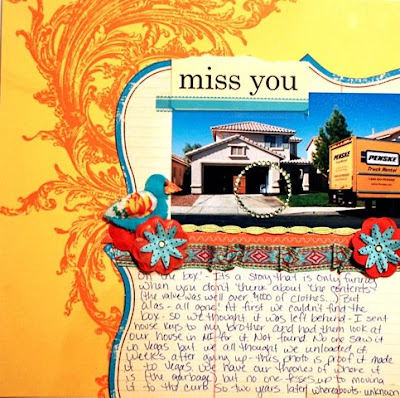 miss you
PENSKE
Truck Rental
PENSKE
Oh "the box" - Its a story that is only funny
when you don't think about the contents
(the value was well over $1000 of clothes...) But
alas - all gone. At first we couldn't find the
box - so we thought it was left behind - I sent
house keys to my brother and had them look at
our house in MI for it. Not found. No one saw it
in Vegas but we all thought we unloaded it
weeks after giving up - this photo is proof it made
it to Vegas. We have our theories of where it
is (the garbage) but no one fesses up to moving
it to the curb. So two years later whereabouts - unknown